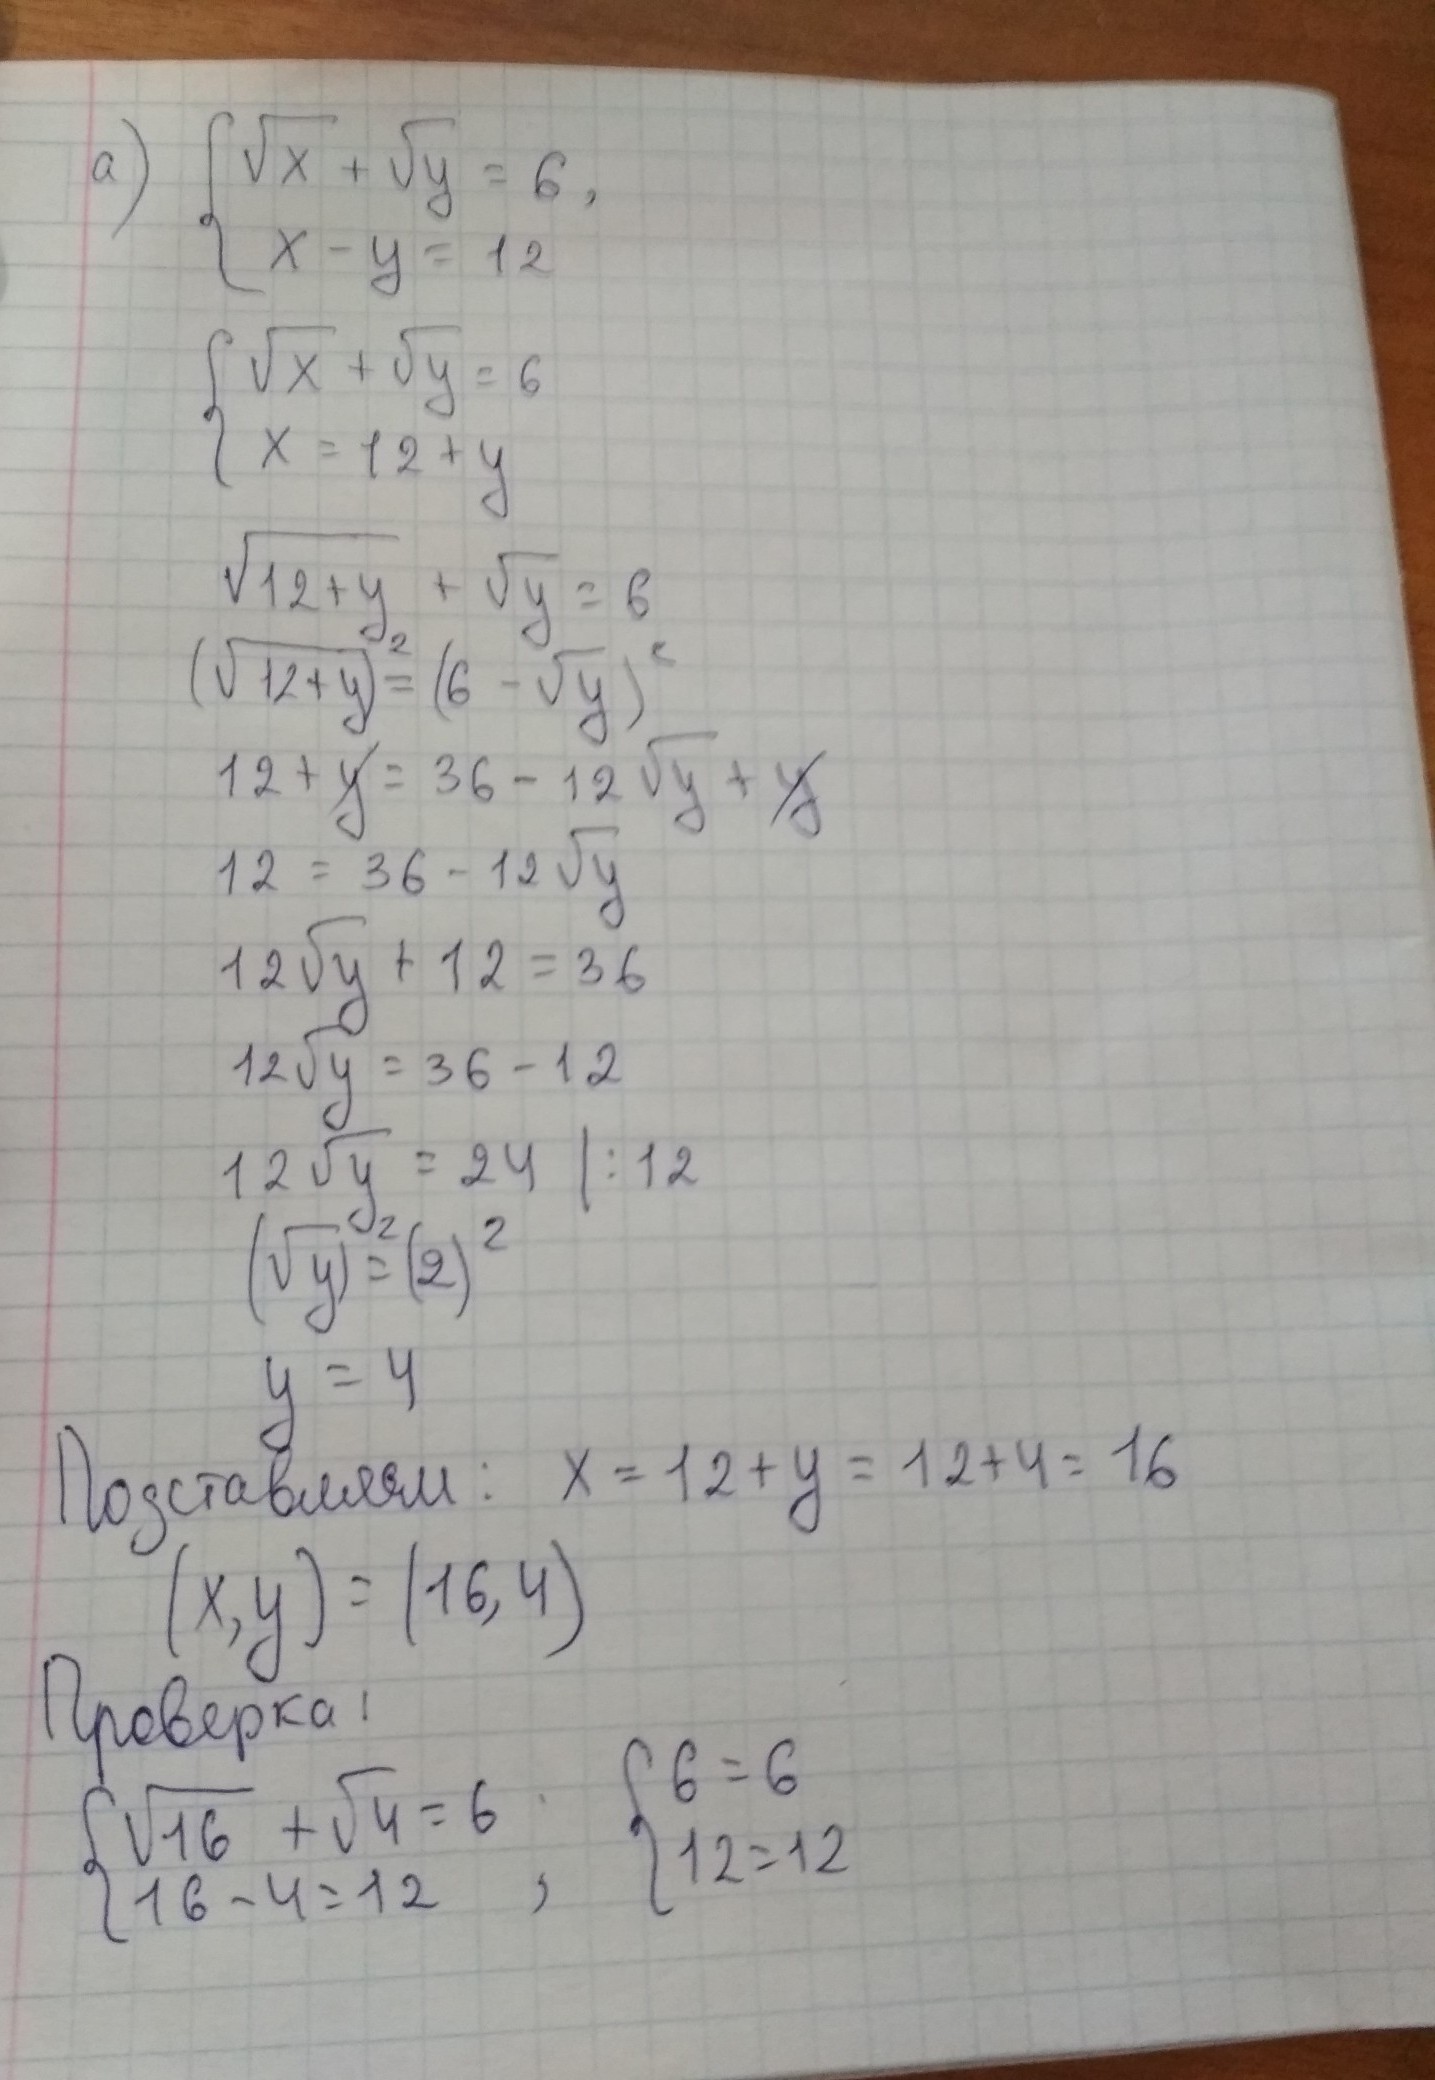 а) { √x + √y = 6,
x - y = 12
{ √x + √y = 6
x = 12 + y
√12+y + √y = 6
(√12+y)² = (6 - √y)²
12 + y = 36 - 12√y + y
12 = 36 - 12√y
12√y + 12 = 36
12√y = 36 - 12
12√y = 24 |:12
(√y)² = (2)²
y = 4
Подставляем: x = 12 + y = 12 + 4 = 16
(x, y) = (16, 4)
Проверка:
{ √16 + √4 = 6
16 - 4 = 12 ,
{ 6 = 6
12 = 12